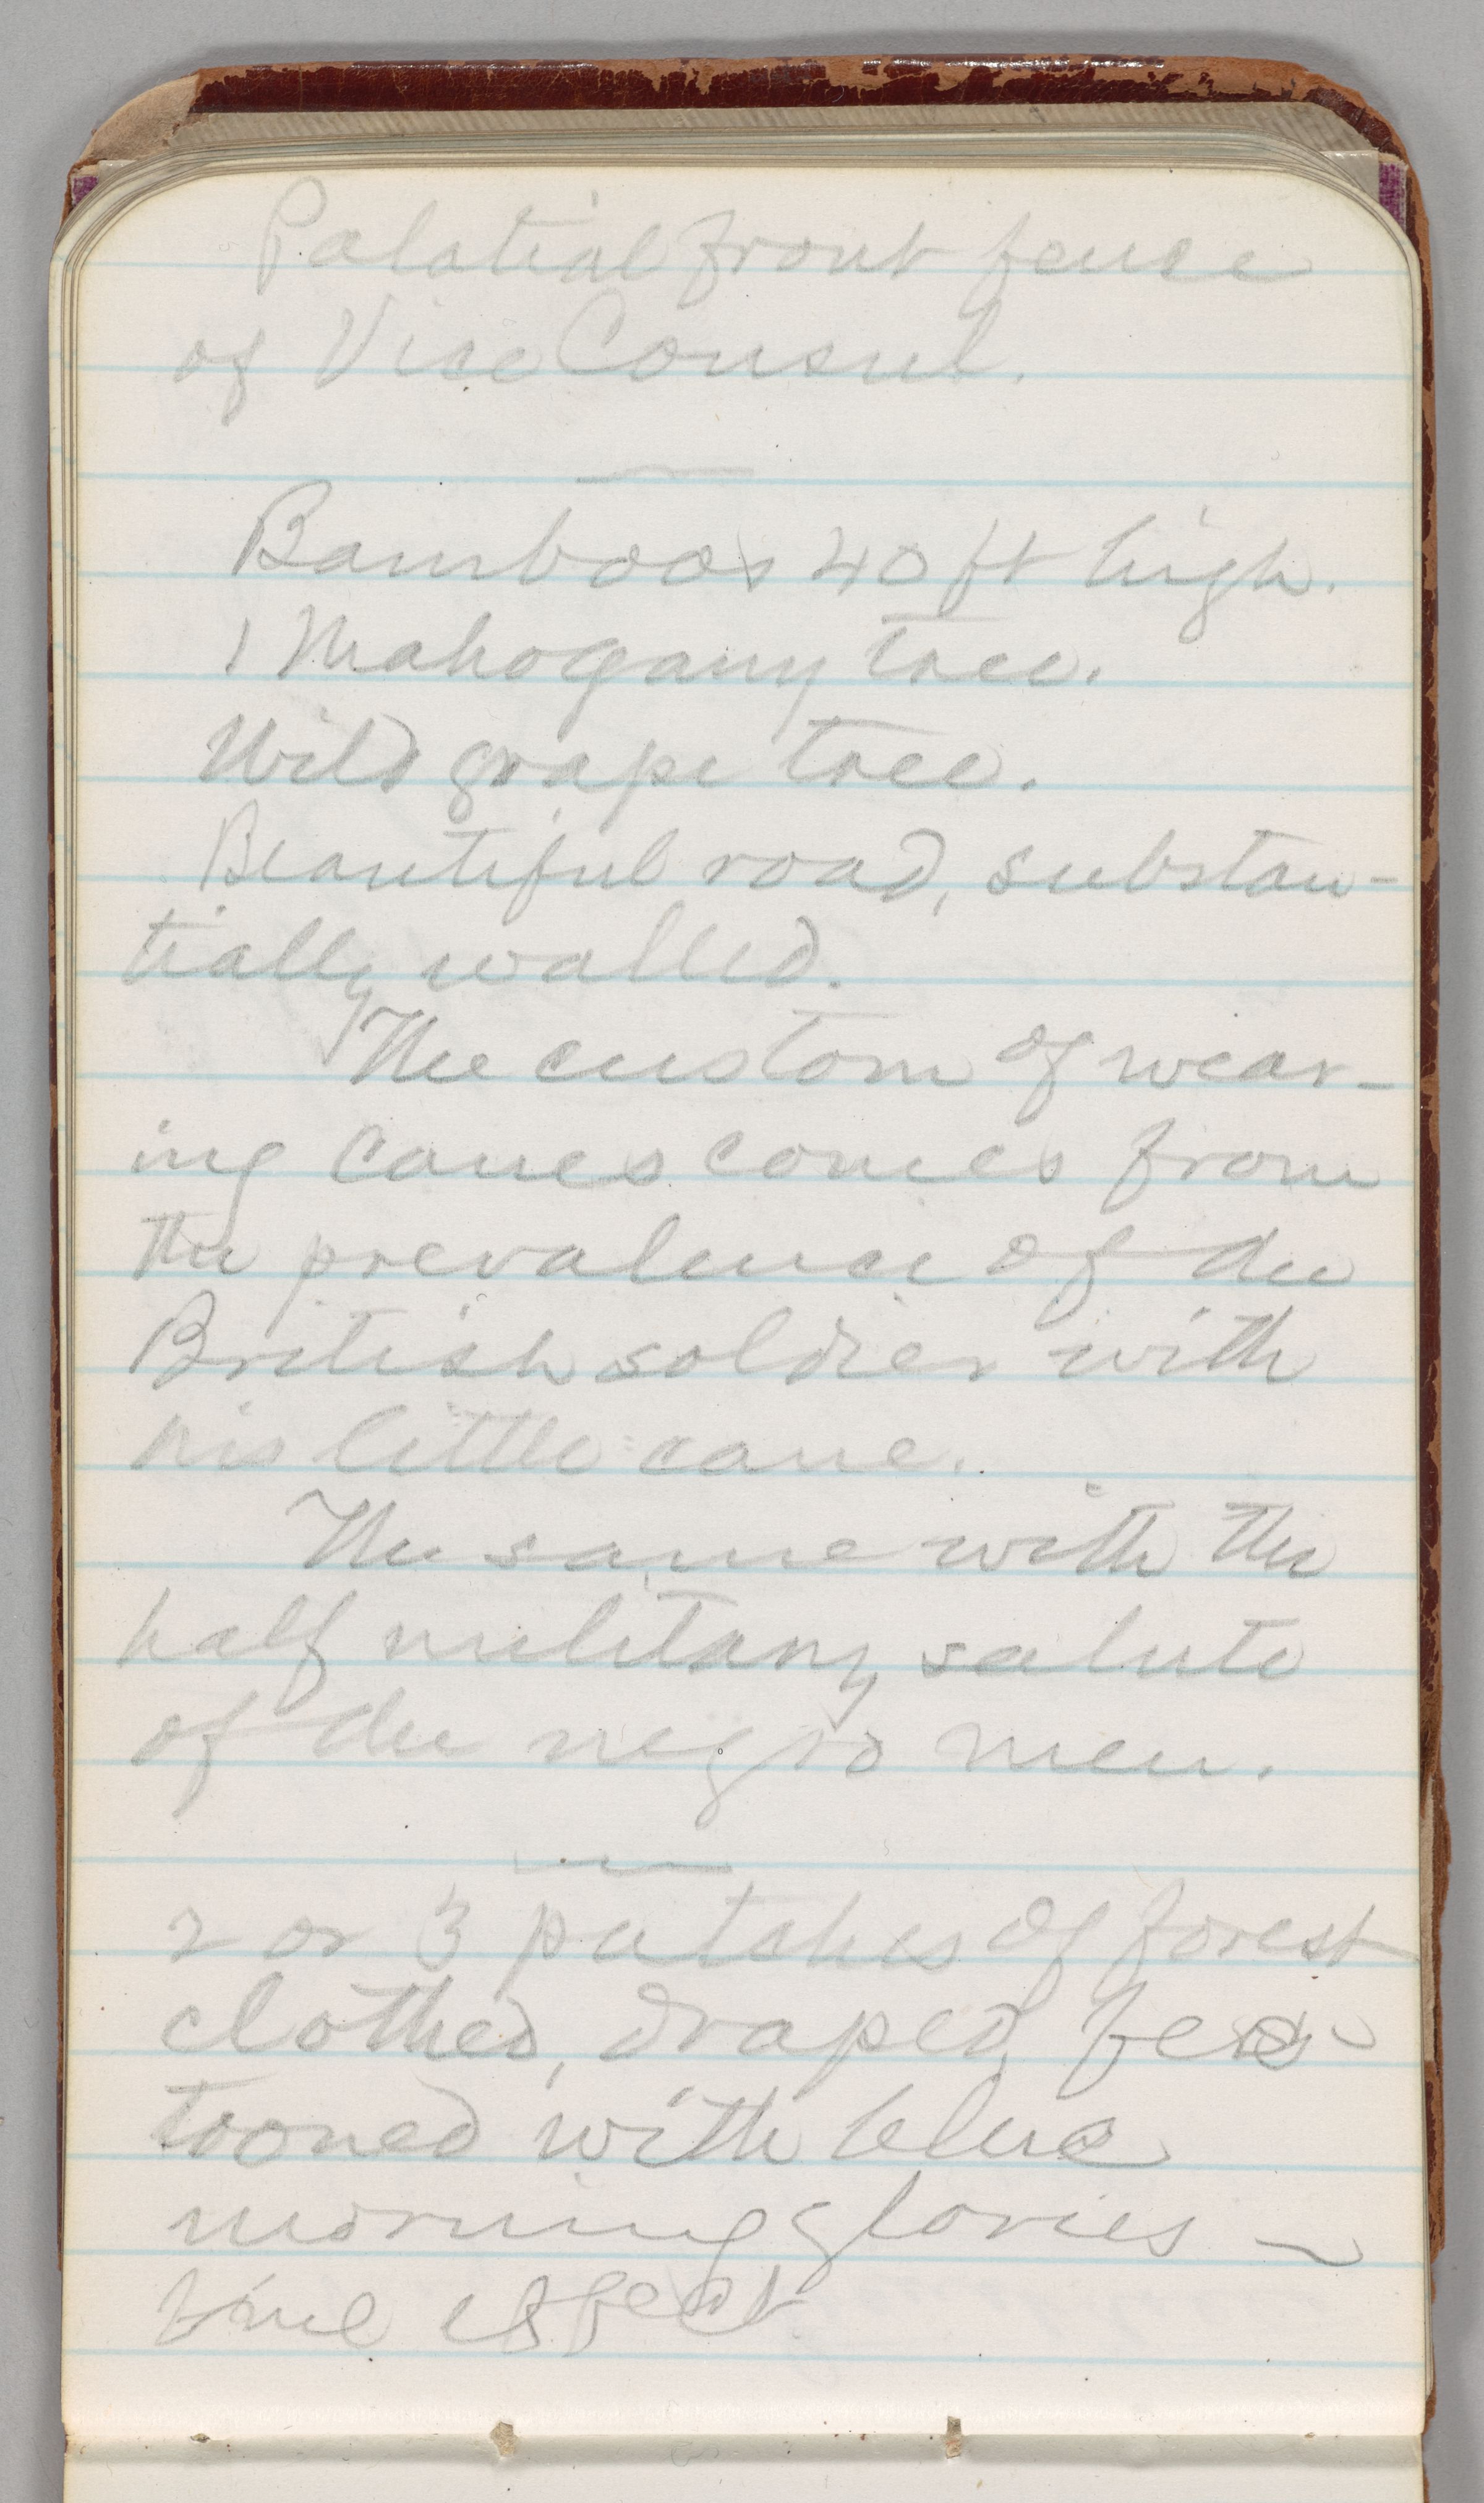 Palatial front fence
of Vice Consul.
Bamboos 40 ft high.
1 Mahogany tree.
Wild grape tree.
Beautiful road, substan-
tially walled.
The custom of wear-
ing canes comes from
the prevalence of the
British soldier with
his little cane.
The same with the
half military salute
of the negro men.
2 or 3 patches of forest
clothed, draped, fes-
tooned with blue
morning glories –
fine effect.